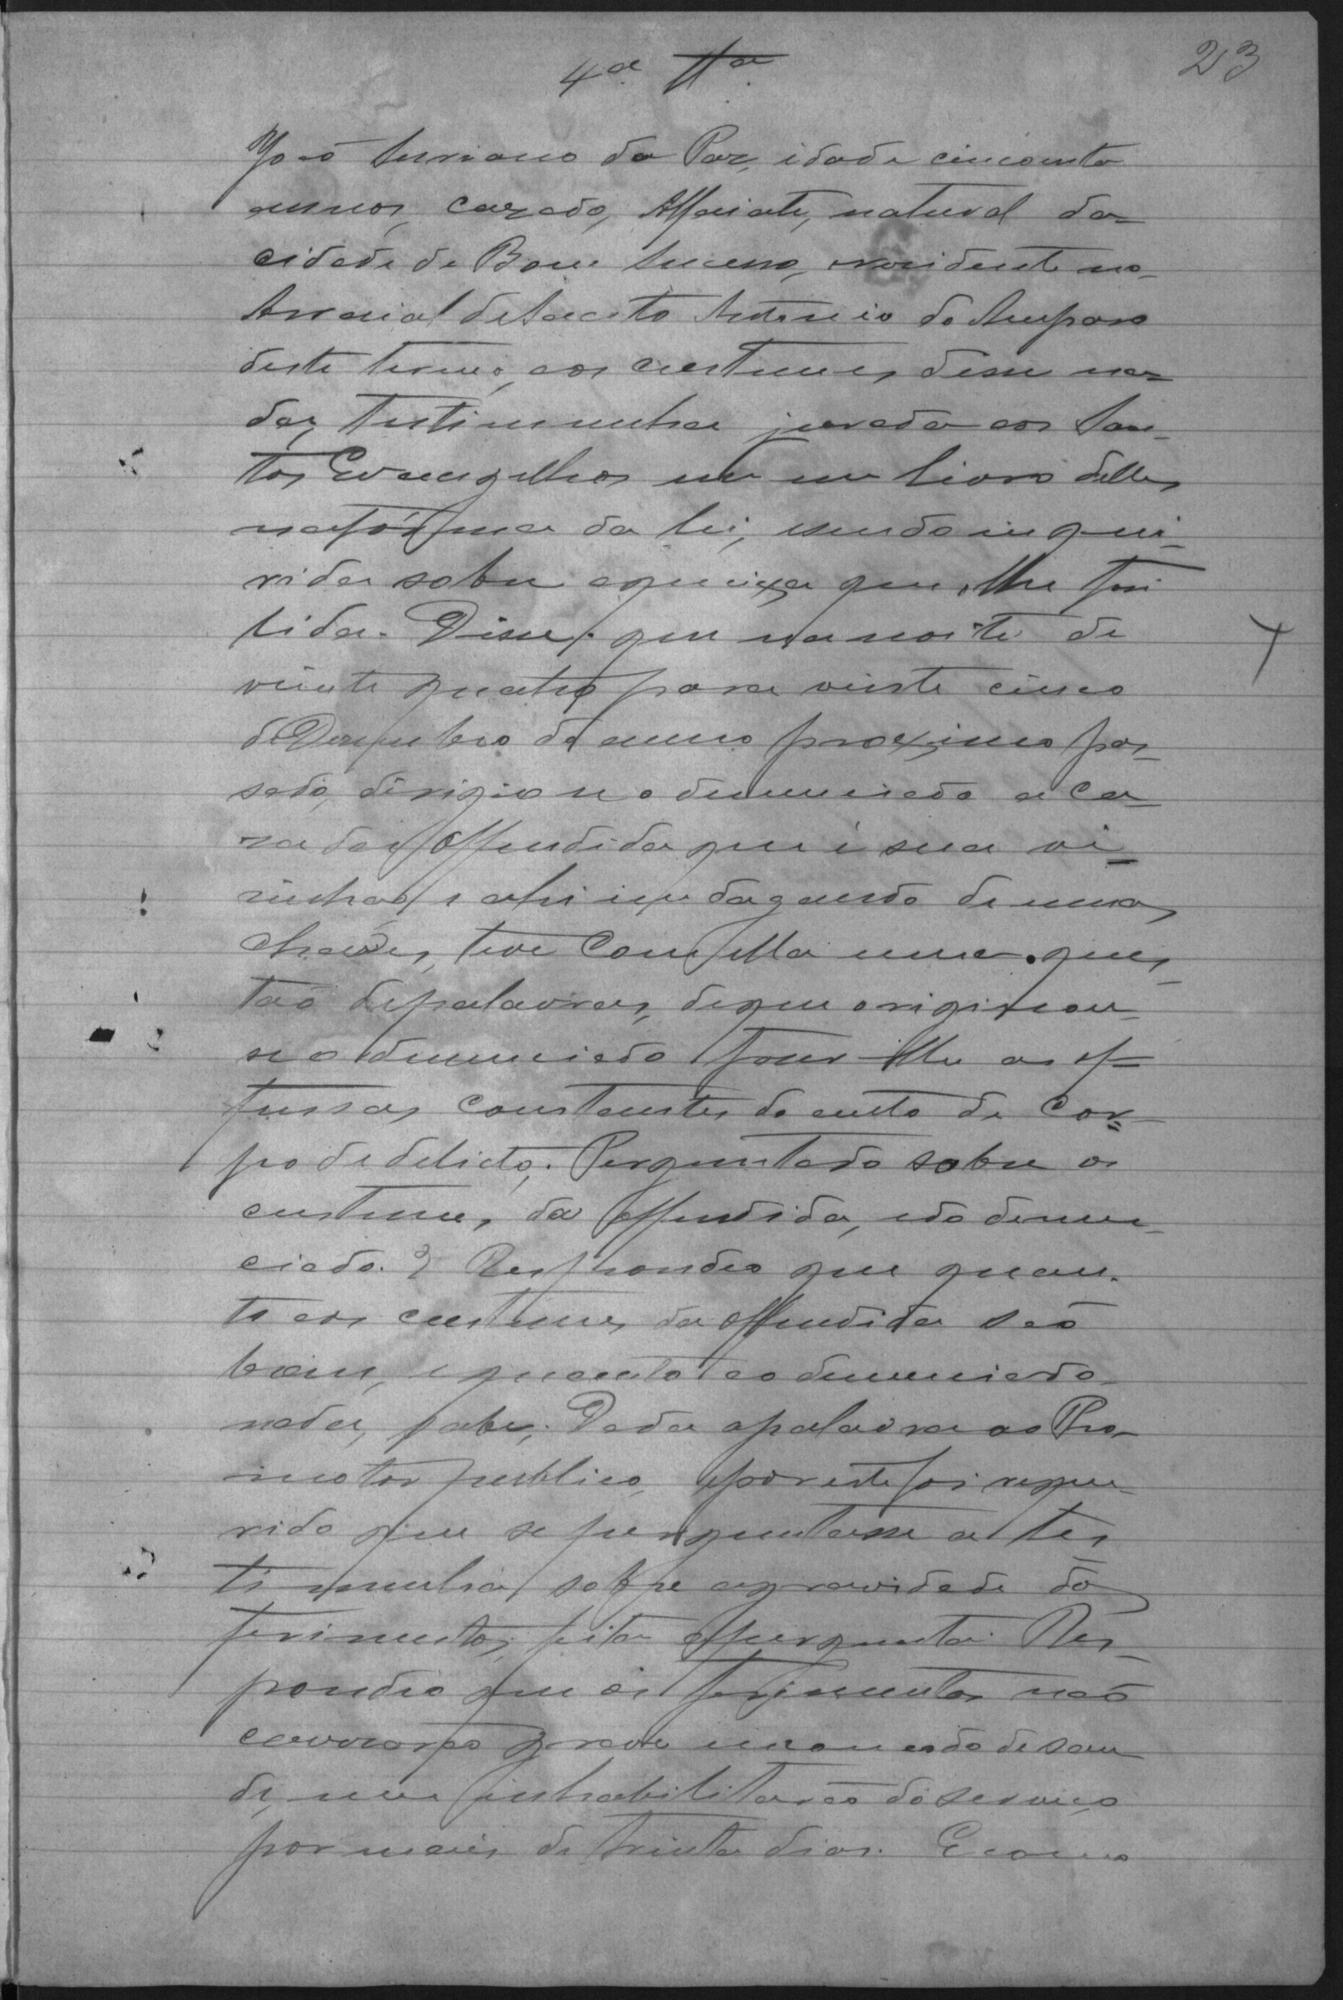 23
4ª Tª
João da Paz, idade cincoenta
annos, cazado, Alfaiate, natural da
cidade de Bom Sucesso, rezidente no
Arraial de Santo Antonio do Amparo
deste termo, aos custumes disse na-
da, testimunha jurada aos San-
tos Evangelhos em um livro delles
na fórma da lei, e sendo inqui-
rida sobre a queixa que lhe foi
lida. Disse, que na noite de
vinte quatro para vinte cinco
de Dezembro do anno proximo pas-
sado, dirigio se o denunciado a ca-
za da offendida que é sua vi-
sinha e ahi indagando de umas
chaves, teve com ella uma ques-
tão de palavras, de que originou-
se o denunciado fazer-lhe as of-
fensas constantes do auto de cor-
po de delicto. Perguntado sobre os
custumes, da offendida, e do denun-
ciado. ? Respondeo que quan-
to aos custumes da offendida são
bons, e quanto ao denunciado
nada, sabe. Dada a palavra ao Pro-
motor publico, e por este foi reque-
rido que se perguntasse a tes-
timunha sobre a gravidade dos
ferimentos, feita a pergunta. Res-
pondeo que os ferimentos não
cauzarão grave incomodo de sau-
de, nem inhabilitação do serviço
por mais de trinta dias. E como